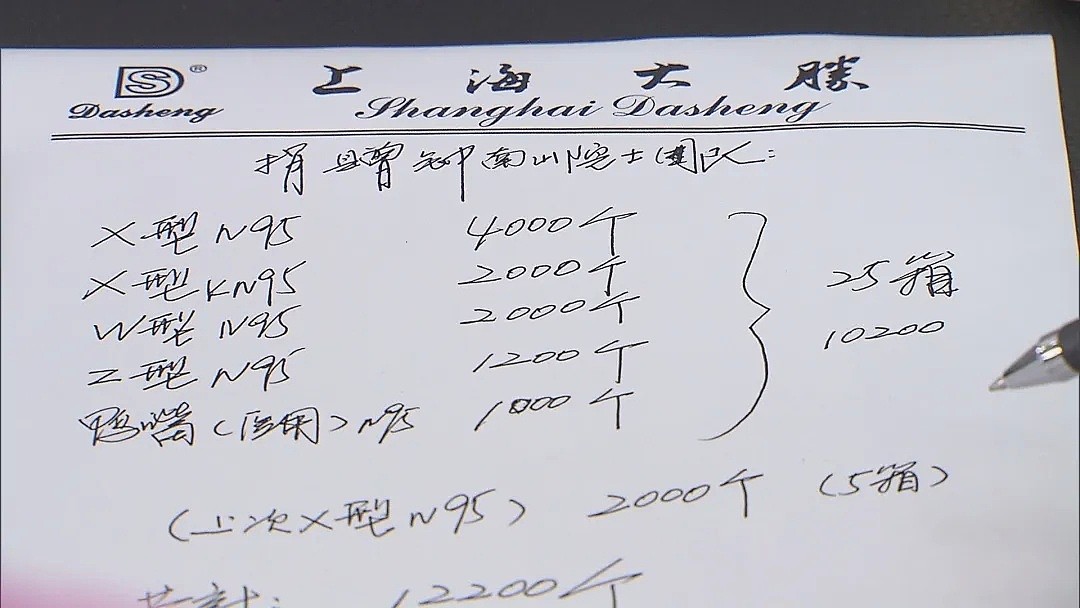 DS® 上海大勝
Dasheng Shanghai Dasheng
捐赠钟南山院士團队:
X型 N95 4000个
X型 KN95 2000个 25箱
W型 N95 2000个 10200
Z型 N95 1200个
鸭嘴(医用)N95 1000个
(上次X型N95) 2000个 (5箱)
共計: 12200个